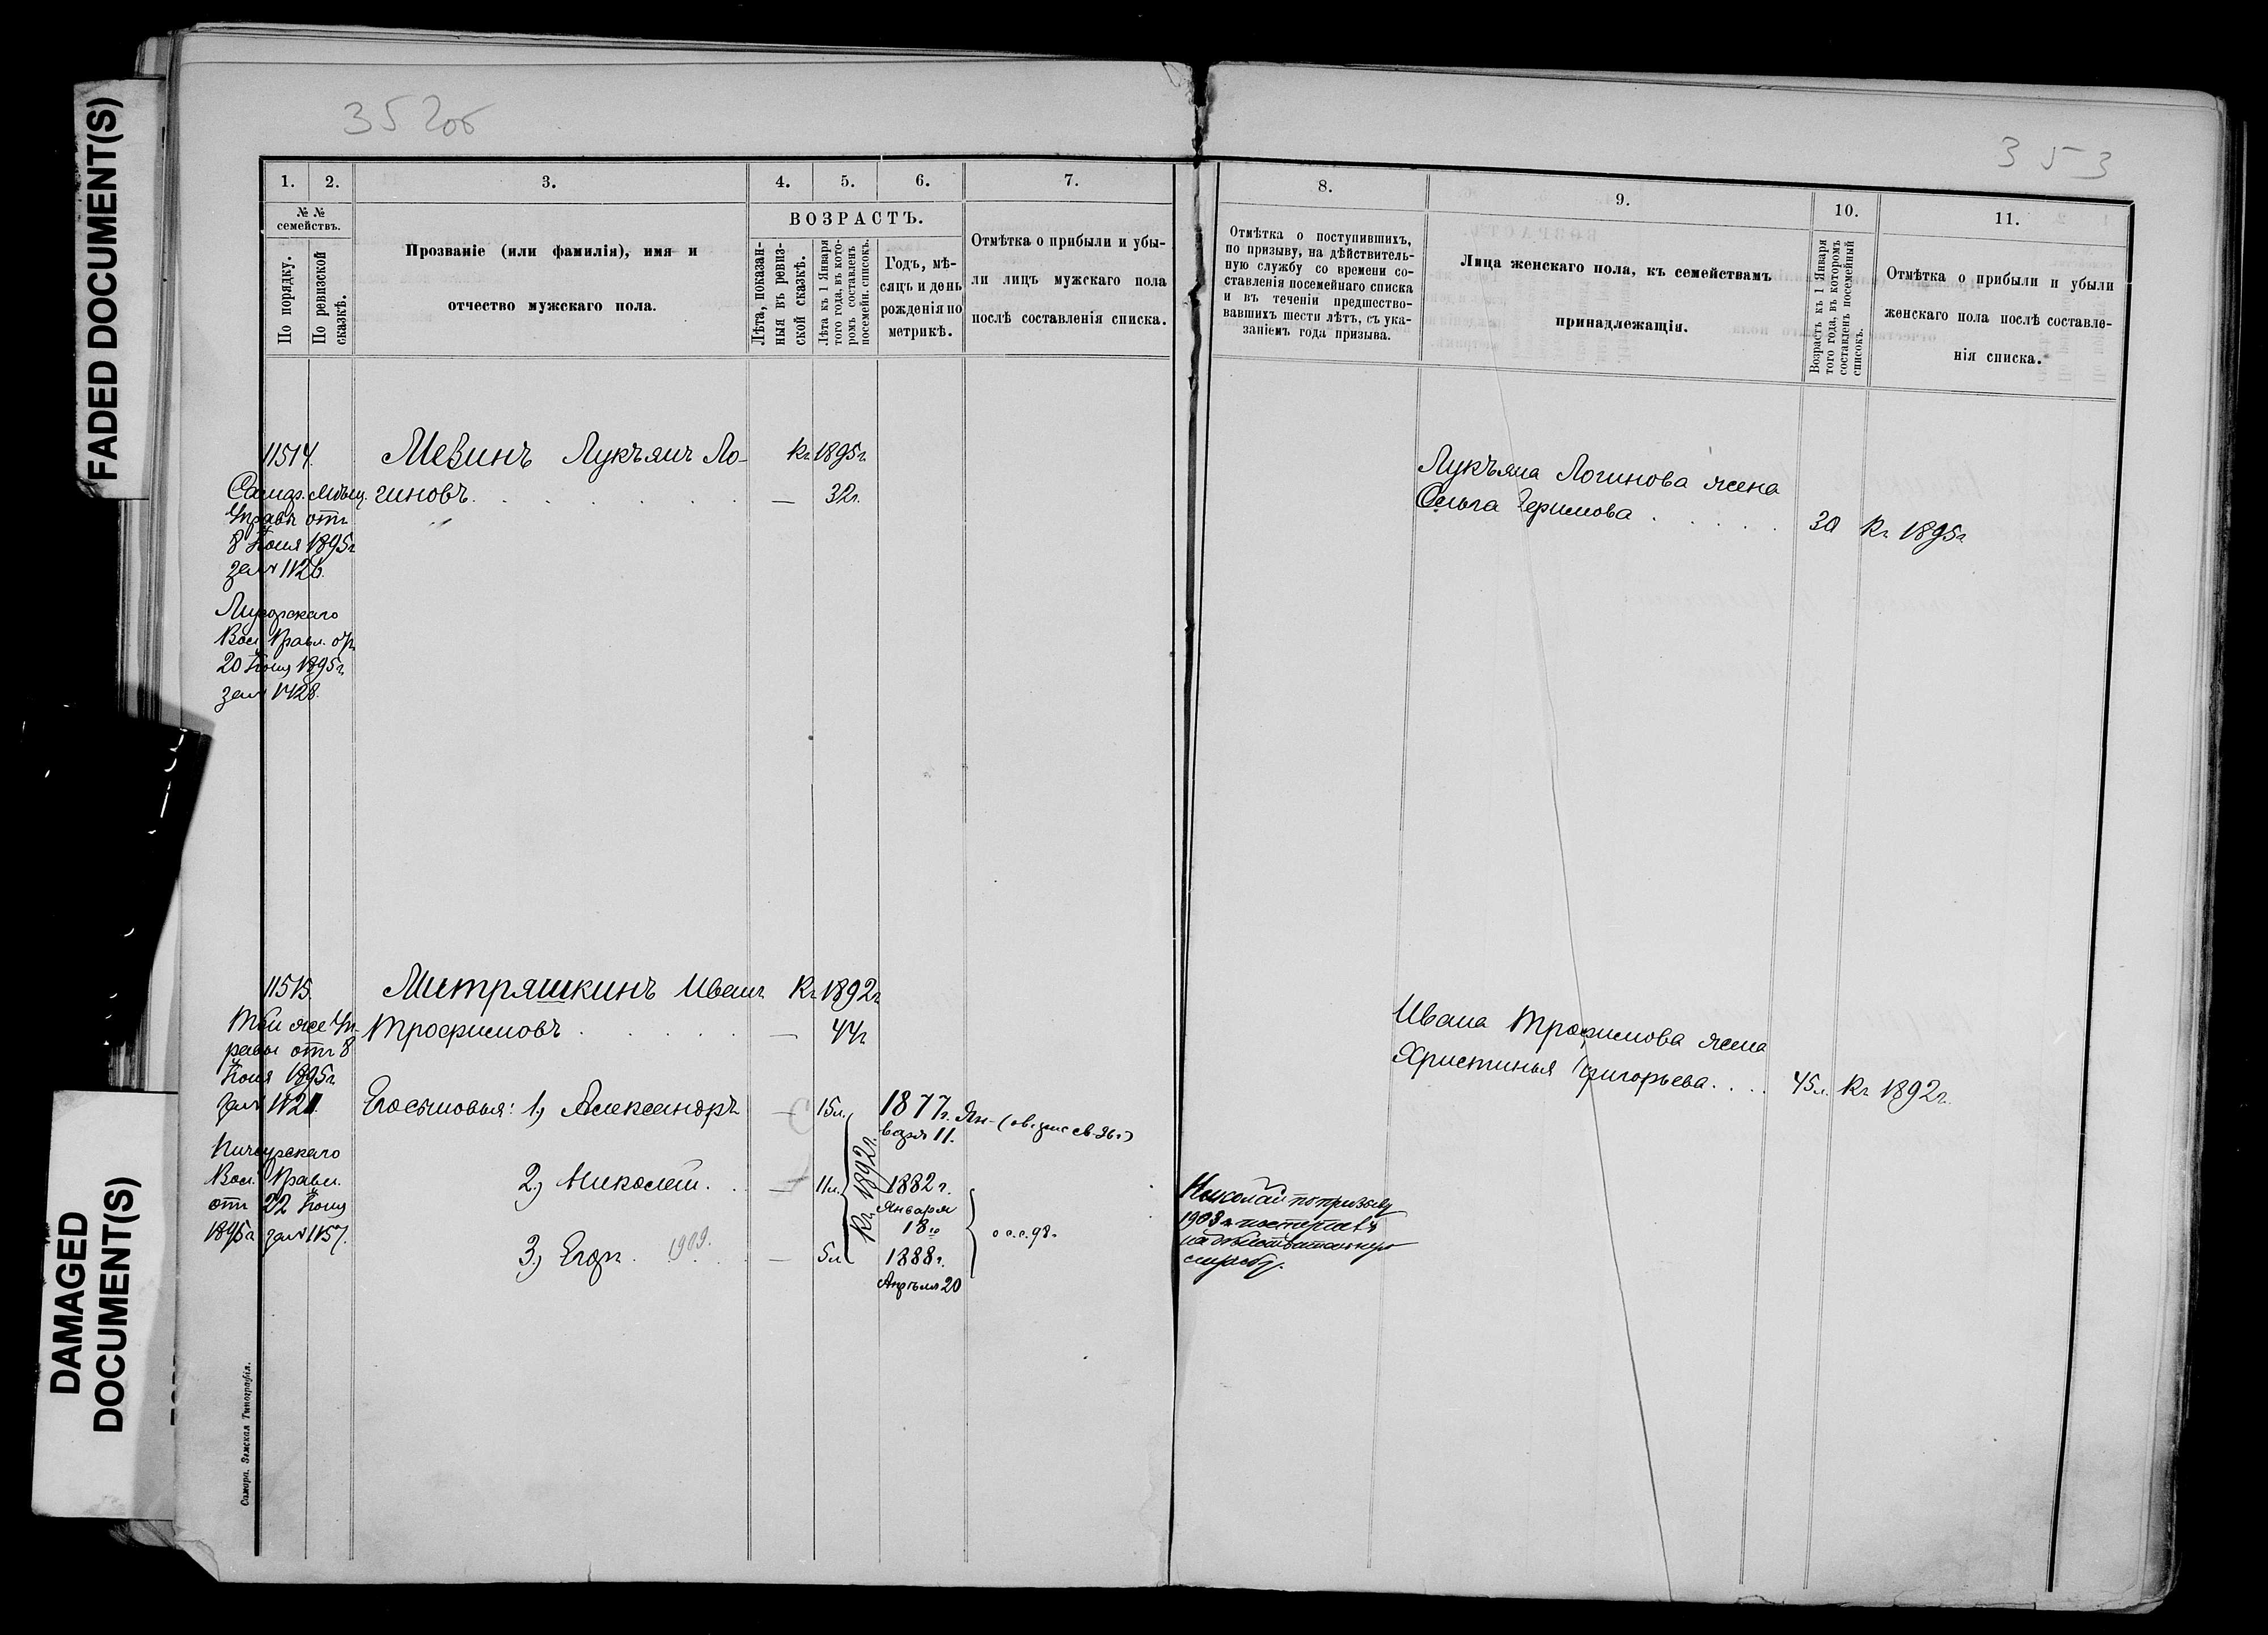 FADED DOCUMENT(S)
DAMAGED
DOCUMENT(S)
352об
353
1. 2. 3. 4. 5. 6. 7.
№ №
семействъ.
По порядку.
По ревизской
сказкѣ.
Прозваніе (или фамилія), имя и
отчество мужскаго пола.
ВОЗРАСТЪ.
Лѣта, показан-
ныя въ ревиз-
ской сказкѣ.
Лѣта къ 1 Января
того года, въ кото-
ромъ составленъ
посемейн. списокъ.
Годъ, мѣ-
сяцъ и день
рожденія по
метрикѣ.
Отмѣтка о прибыли и убы-
ли лицъ мужскаго пола
послѣ составленія списка.
8. 9. 10. 11.
Отмѣтка о поступившихъ,
по призыву, на дѣйствитель-
ную службу со времени со-
ставленія посемейнаго списка
и въ теченіи предшество-
вавшихъ шести лѣтъ, съ ука-
заніемъ года призыва.
Лица женскаго пола, къ семействамъ
принадлежащія.
Возрастъ къ 1 Января
того года, въ которомъ
составленъ посемейный
списокъ.
Отмѣтка о прибыли и убыли
женскаго пола послѣ составле-
нія списка.
11514. Мезинъ Лукъянъ Ло- Къ 1895г.
гиновъ. — 32г.
Самар. Мѣщ.
Управы отъ
8 Іюня 1895г
за № 1126.
Волъ. Правл. отъ
20 Іюня 1895г.
за № 1428.
Лукъяна Логинова жена
Ольга 30 Къ 1895г
11515. Митряшкинъ Иванъ Къ 1892г
Трофимовъ — 44г
Той же Уп-
равы отъ 8
Іюня 1895г.
Вол. Правл.
отъ 22 Іюня
1895г за № 1157.
Его сыновья: 1, Александръ — 15л. 1877г. Ян-
варя 11.
2, Николай. — 11л. 1882г.
Января
18го
3, Егоръ. 1909. — 5л 1888г.
Апрѣля 20
Къ 1892г.
о с.с. 98.
Николай по призыву
1903г. поступилъ
на дѣйствительную
службу.
Ивана Трофимова жена
Христинья Григорьева. . . . 45л. Къ 1892г.
Самара. Земская Типографія.